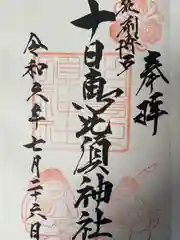 奉拝
十日恵比須神社
令和六年七月二十六日